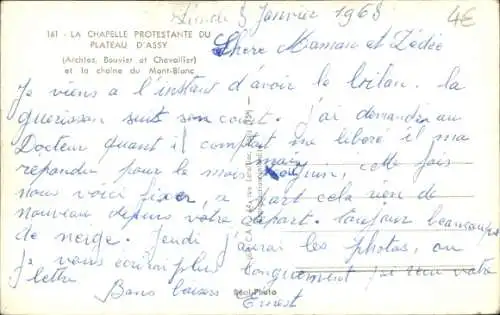 161 - LA CHAPELLE PROTESTANTE DU
PLATEAU D'ASSY
(Architec. Bouvier et Chevallier)
et la chaîne du Mont-Blanc
3 Janvier 1963
4€
Chère Maman et Dédée
Je viens a l'instant d'avoir le bilan. la
guerisson suit son court. j'ai demandée au
Docteur quant il comptait me liberé il ma
répondu pour le mois main juin, cette fois
nous voici fixer, a part cela rien de
nouveau depuis votre départ. toujour beaucoup
de neige. Jeudi j'aurai les photos, on
Je vous ecrirai plus longuement j'ai reçu votre
lettre
Bons baisers Ernest
Réel-Photo